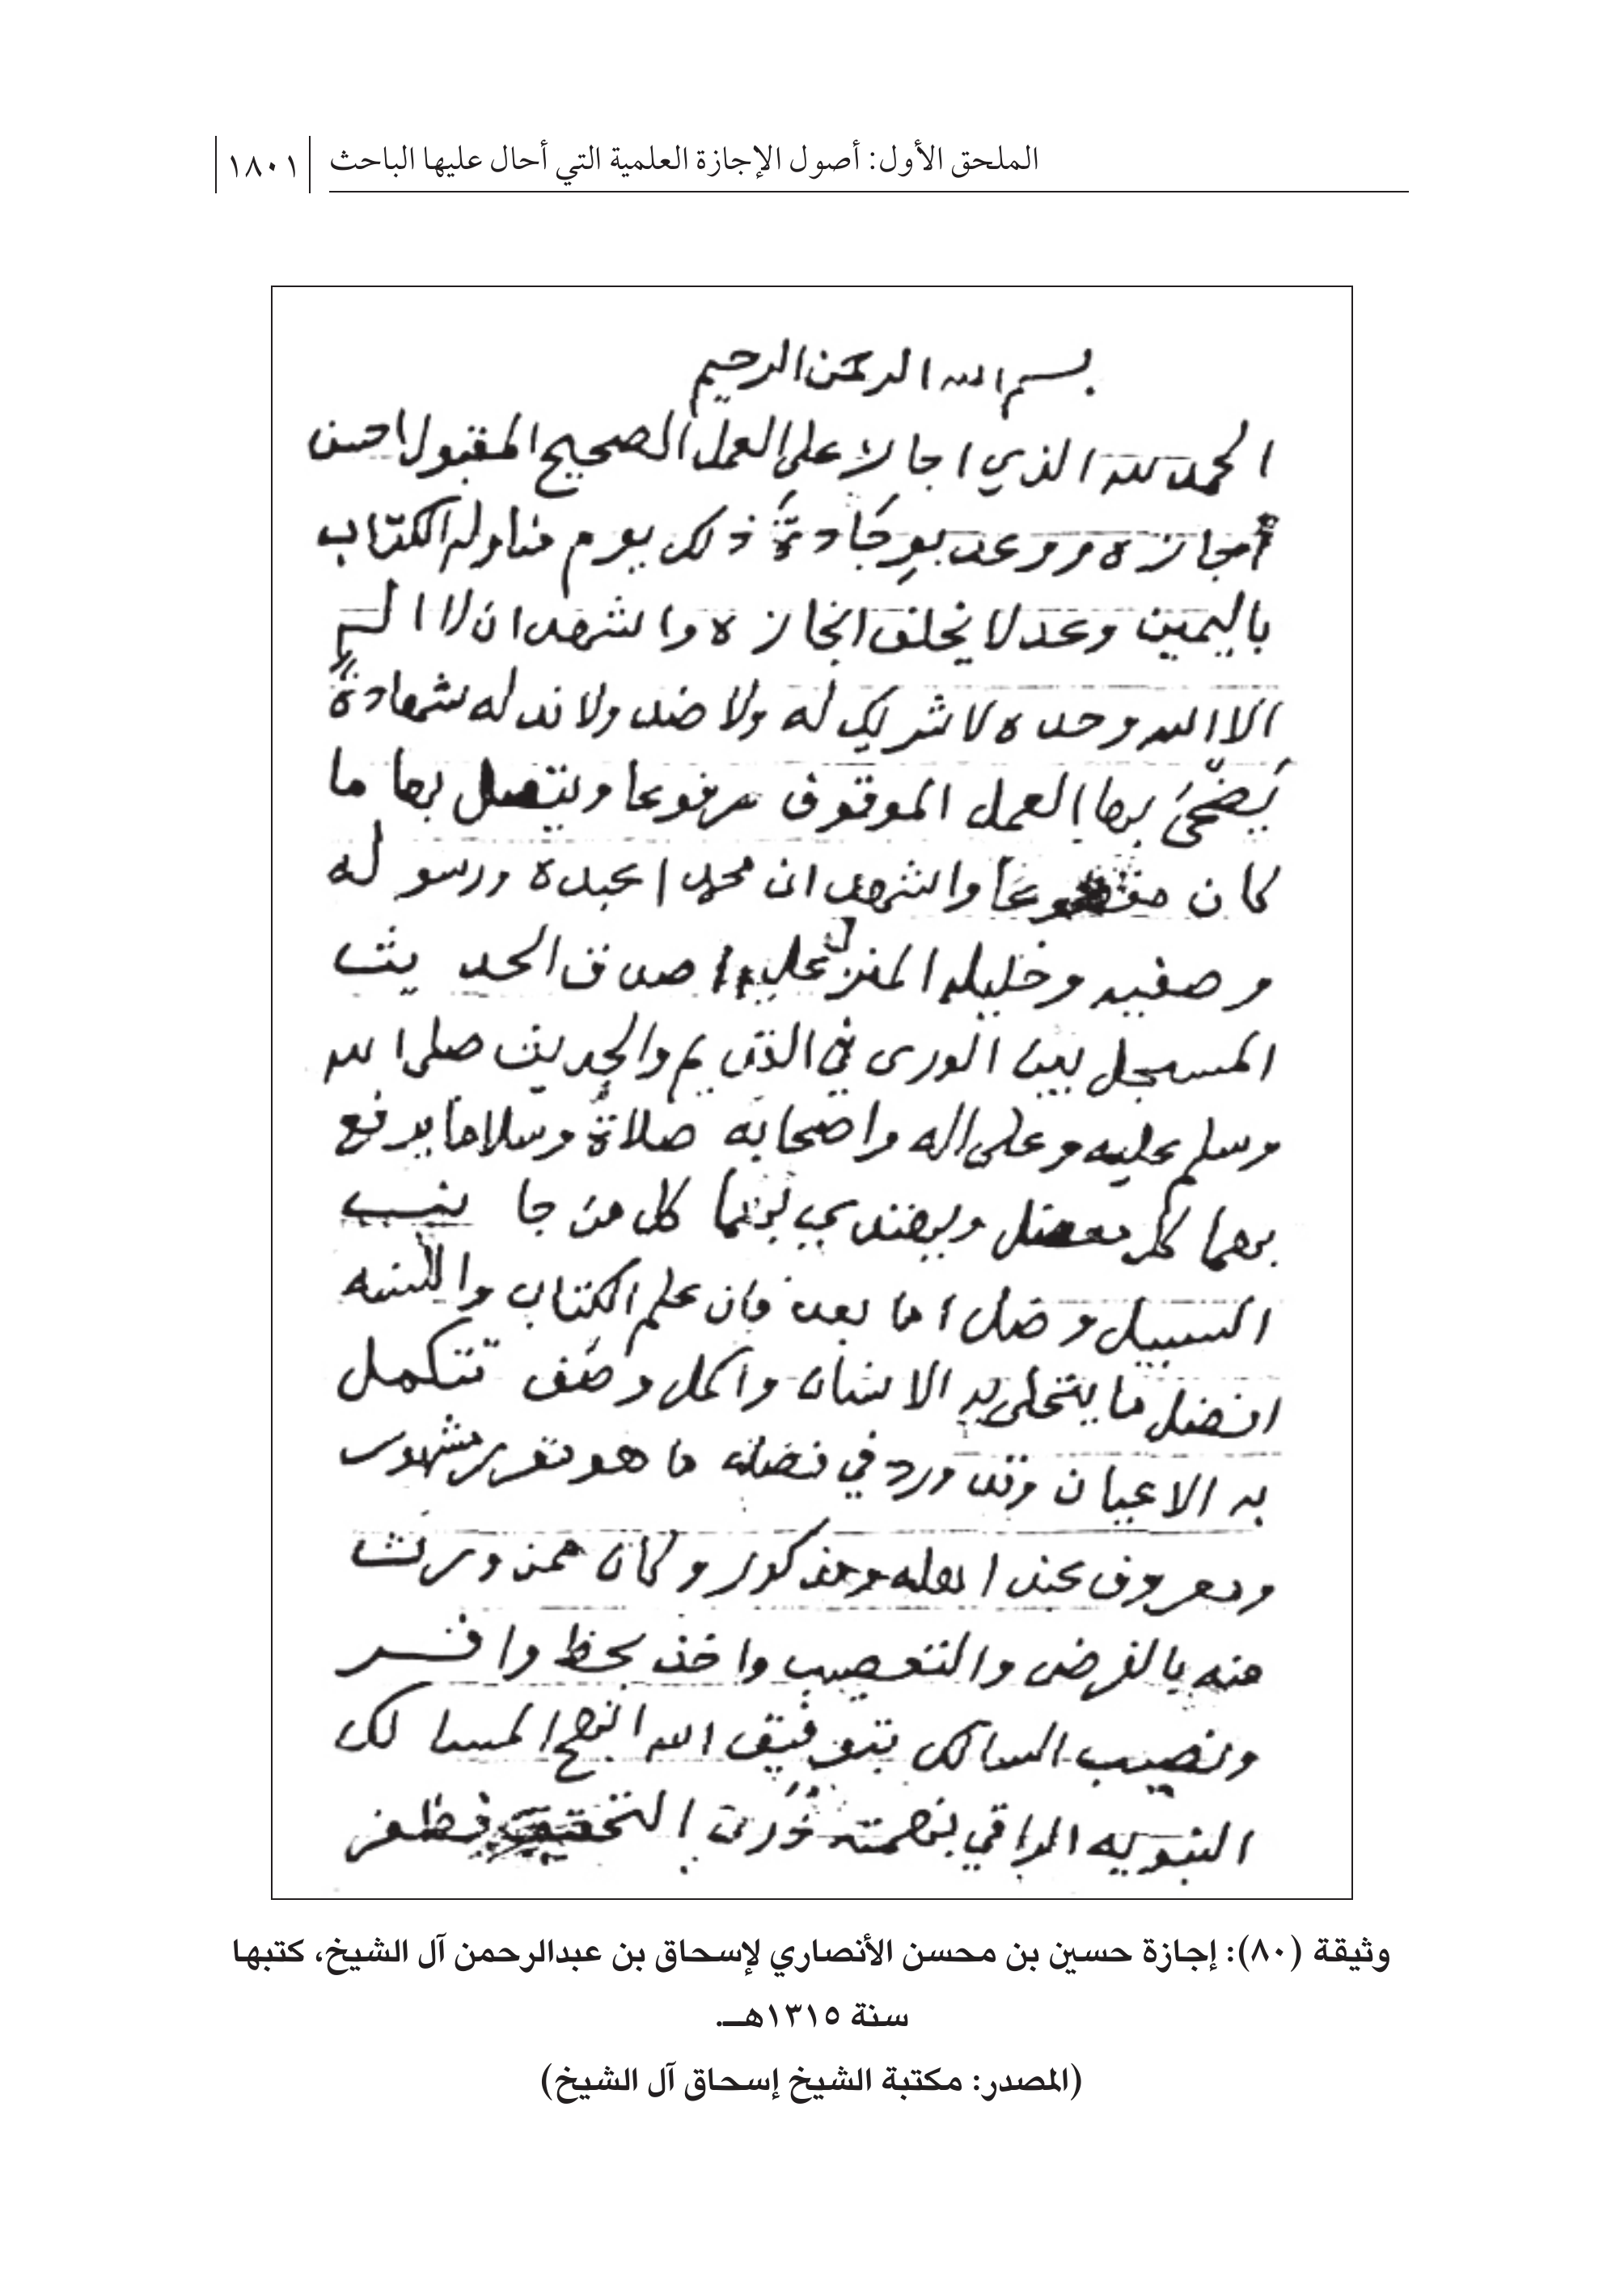 الملحق الأول: أصول الإجازة العلمية التي أحال عليها الباحث ١٨٠١
بسم الله الرحمن الرحيم
الحمد لله الذي اجا على العمل الصحيح المقبول احسن
اجازه ووعد بوجادة ذلك يوم مناولة الكتاب
باليمين وعد لا يخلف انجازه واشهد ان لا اله
الا الله وحده لا شريك له ولا ضد ولا ند له شهادة
يضحى بها العمل الموقوف مرفوعا ويتصل بها ما
كان مقطوعا واشهد ان محمدا عبده ورسوله
وصفيه وخليله المنزل عليه اصدق الحديث
المسجل بين الورى في القديم والحديث صلى الله
وسلم عليه وعلى اله واصحابه صلاة وسلاما يرفع
بهما كل معضل ويهتدي بهما كل من جانب
السبيل وضل اما بعد فان علم الكتاب والسنه
افضل ما يتحلى به الانسان واكمل وصف تتكمل
به الاعيان وقد ورد في فضله ما هو مقرر مشهور
ومعروف عند اهله ومذكور وكان ممن ورث
منه بالفرض والتعصيب واخذ بحظ وافر
ونصيب السالك بتوفيق الله انهج المسالك
النبويه الراقي بهمته ذرى التحقيق فظفر
وثيقة (٨٠): إجازة حسين بن محسن الأنصاري لإسحاق بن عبدالرحمن آل الشيخ، كتبها
سنة ١٣١٥هـ.
(المصدر: مكتبة الشيخ إسحاق آل الشيخ)